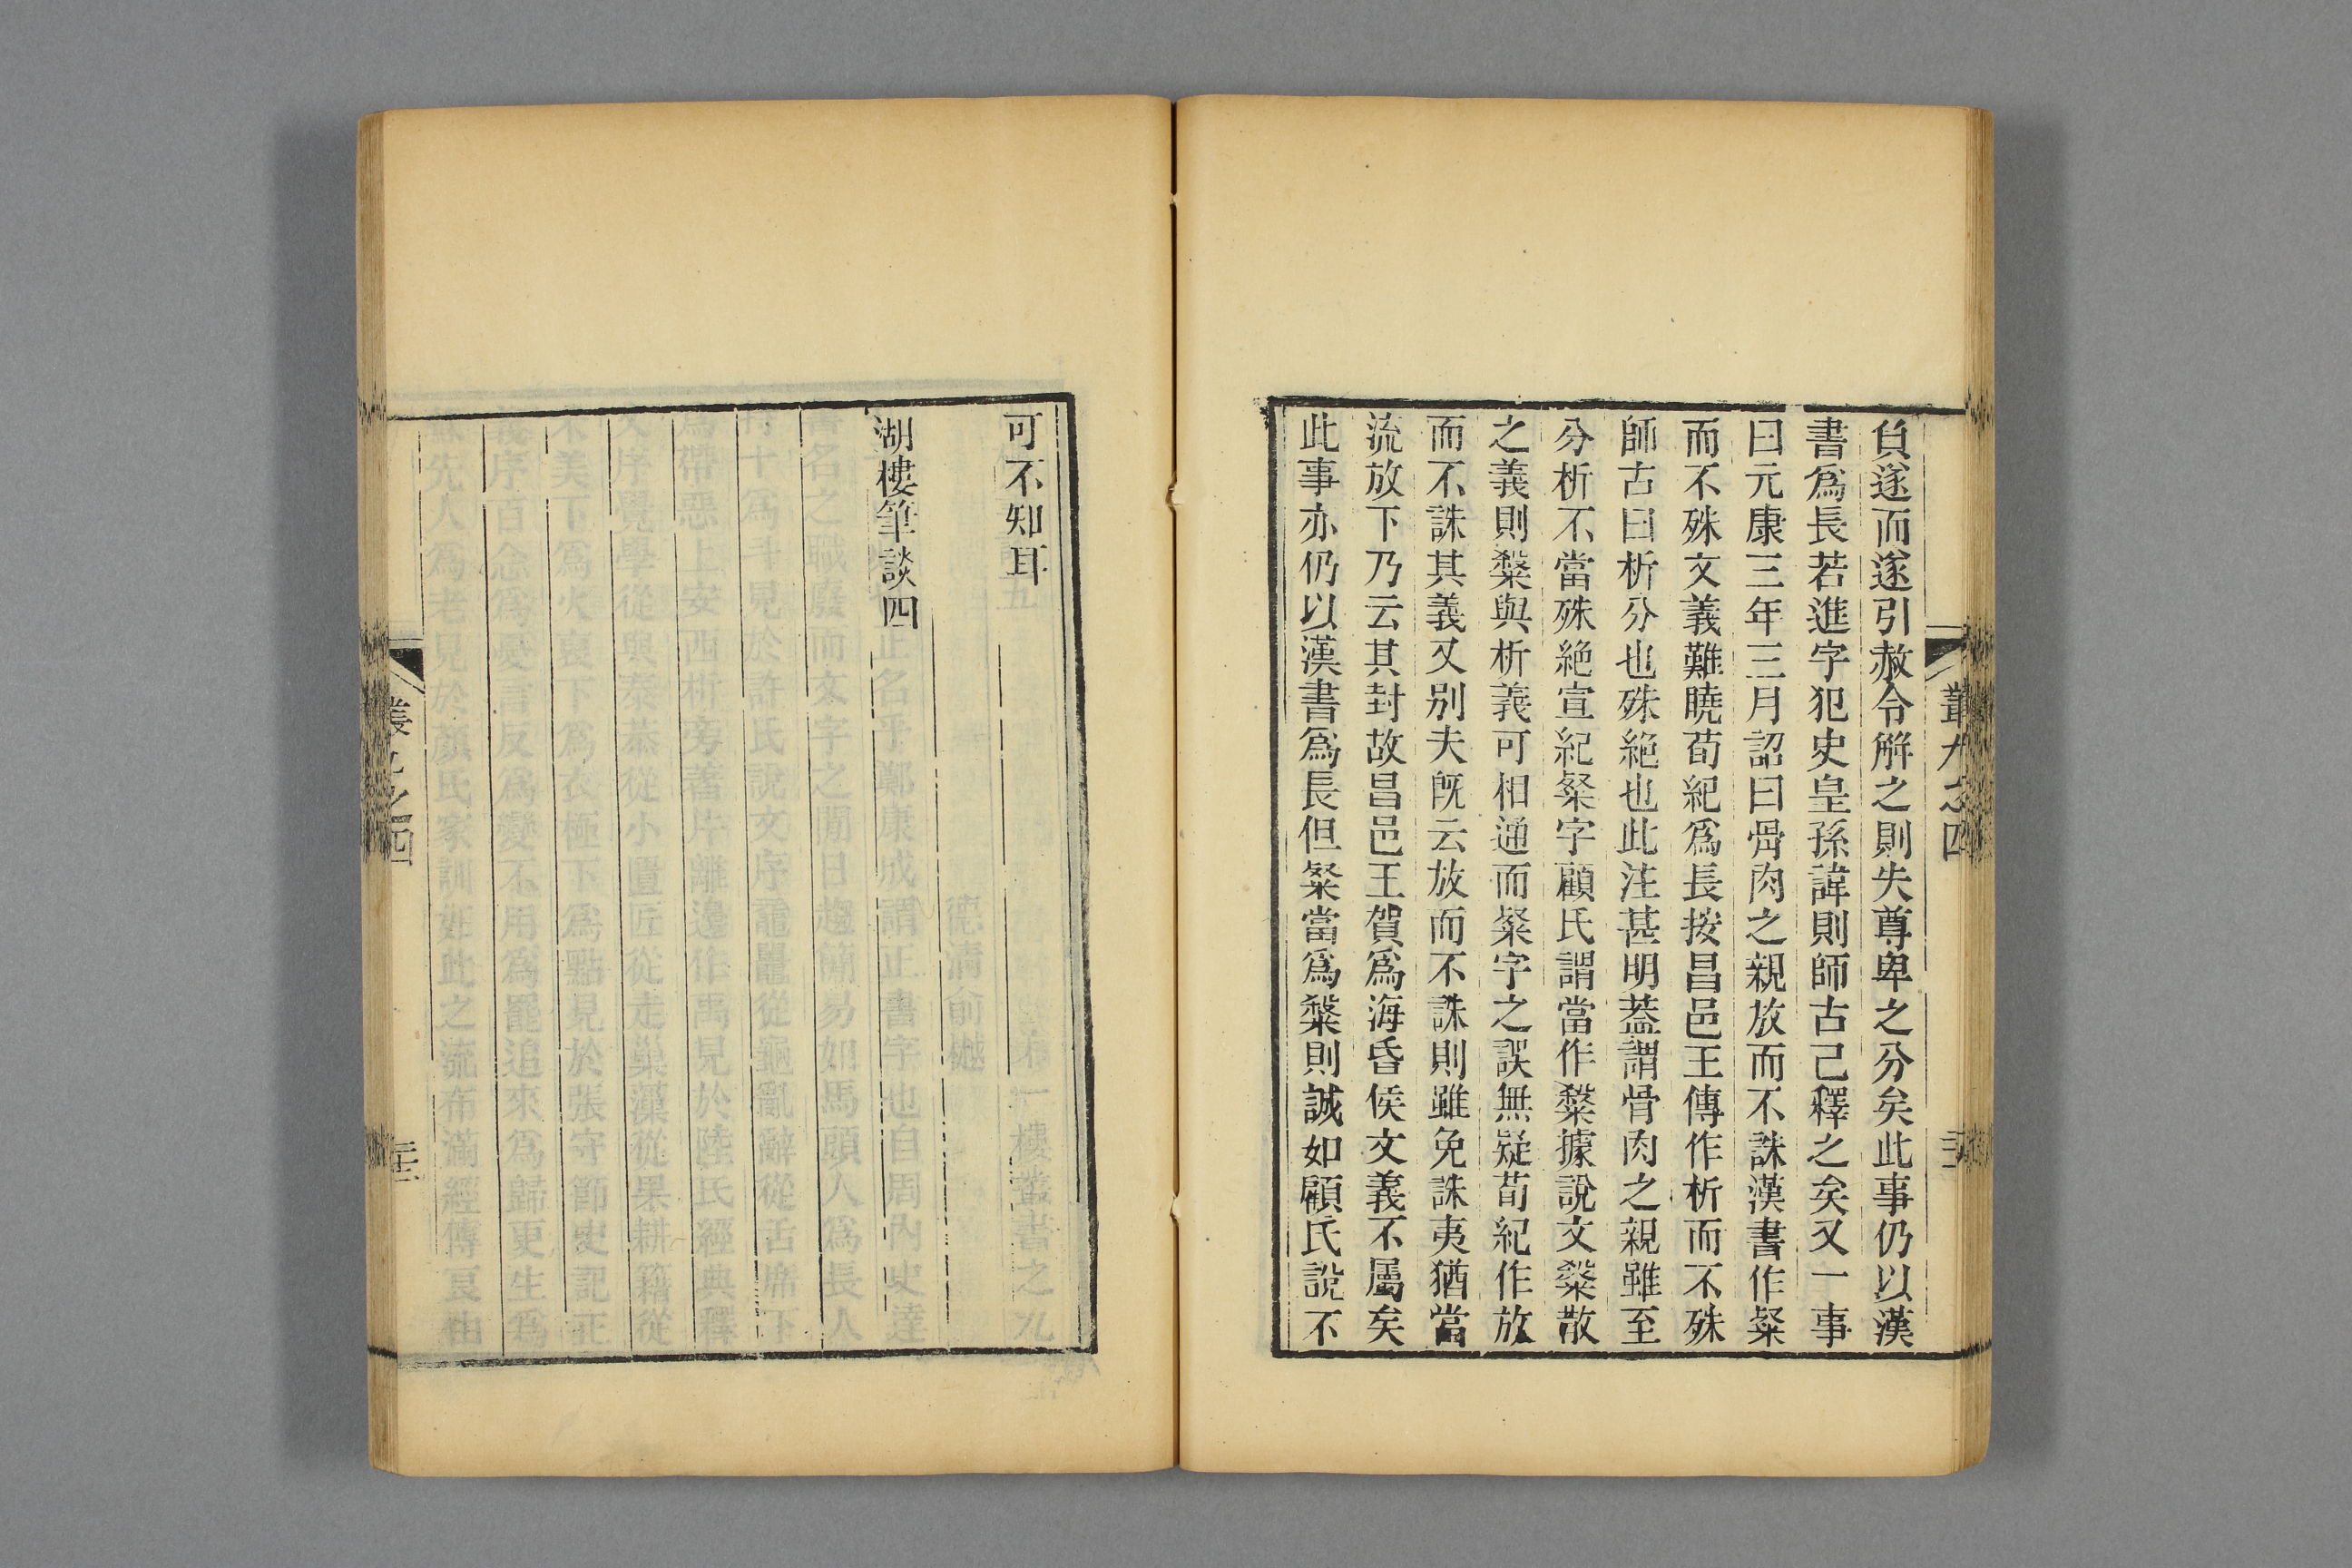 負遂而遂引赦令解之則失尊卑之分矣此事仍以漢
書爲長若進字犯史皇孫諱則師古已釋之矣又一事
曰元康三年三月詔曰骨肉之親放而不誅漢書作粲
而不殊文義難曉荀紀爲長按昌邑王傳作析而不殊
師古曰析分也殊絕也此注甚明蓋謂骨肉之親雖至
分析不當殊絕宣紀粲字顧氏謂當作䊝據說文䊝散
之義則䊝與析義可相通而粲字之誤無疑荀紀作放
而不誅其義又別夫旣云放而不誅則雖免誅夷猶當
流放下乃云其封故昌邑王賀爲海昏侯文義不屬矣
此事亦仍以漢書爲長但粲當爲䊝則誠如顧氏說不
叢九之四
可不知耳
湖樓筆談四
叢九之四